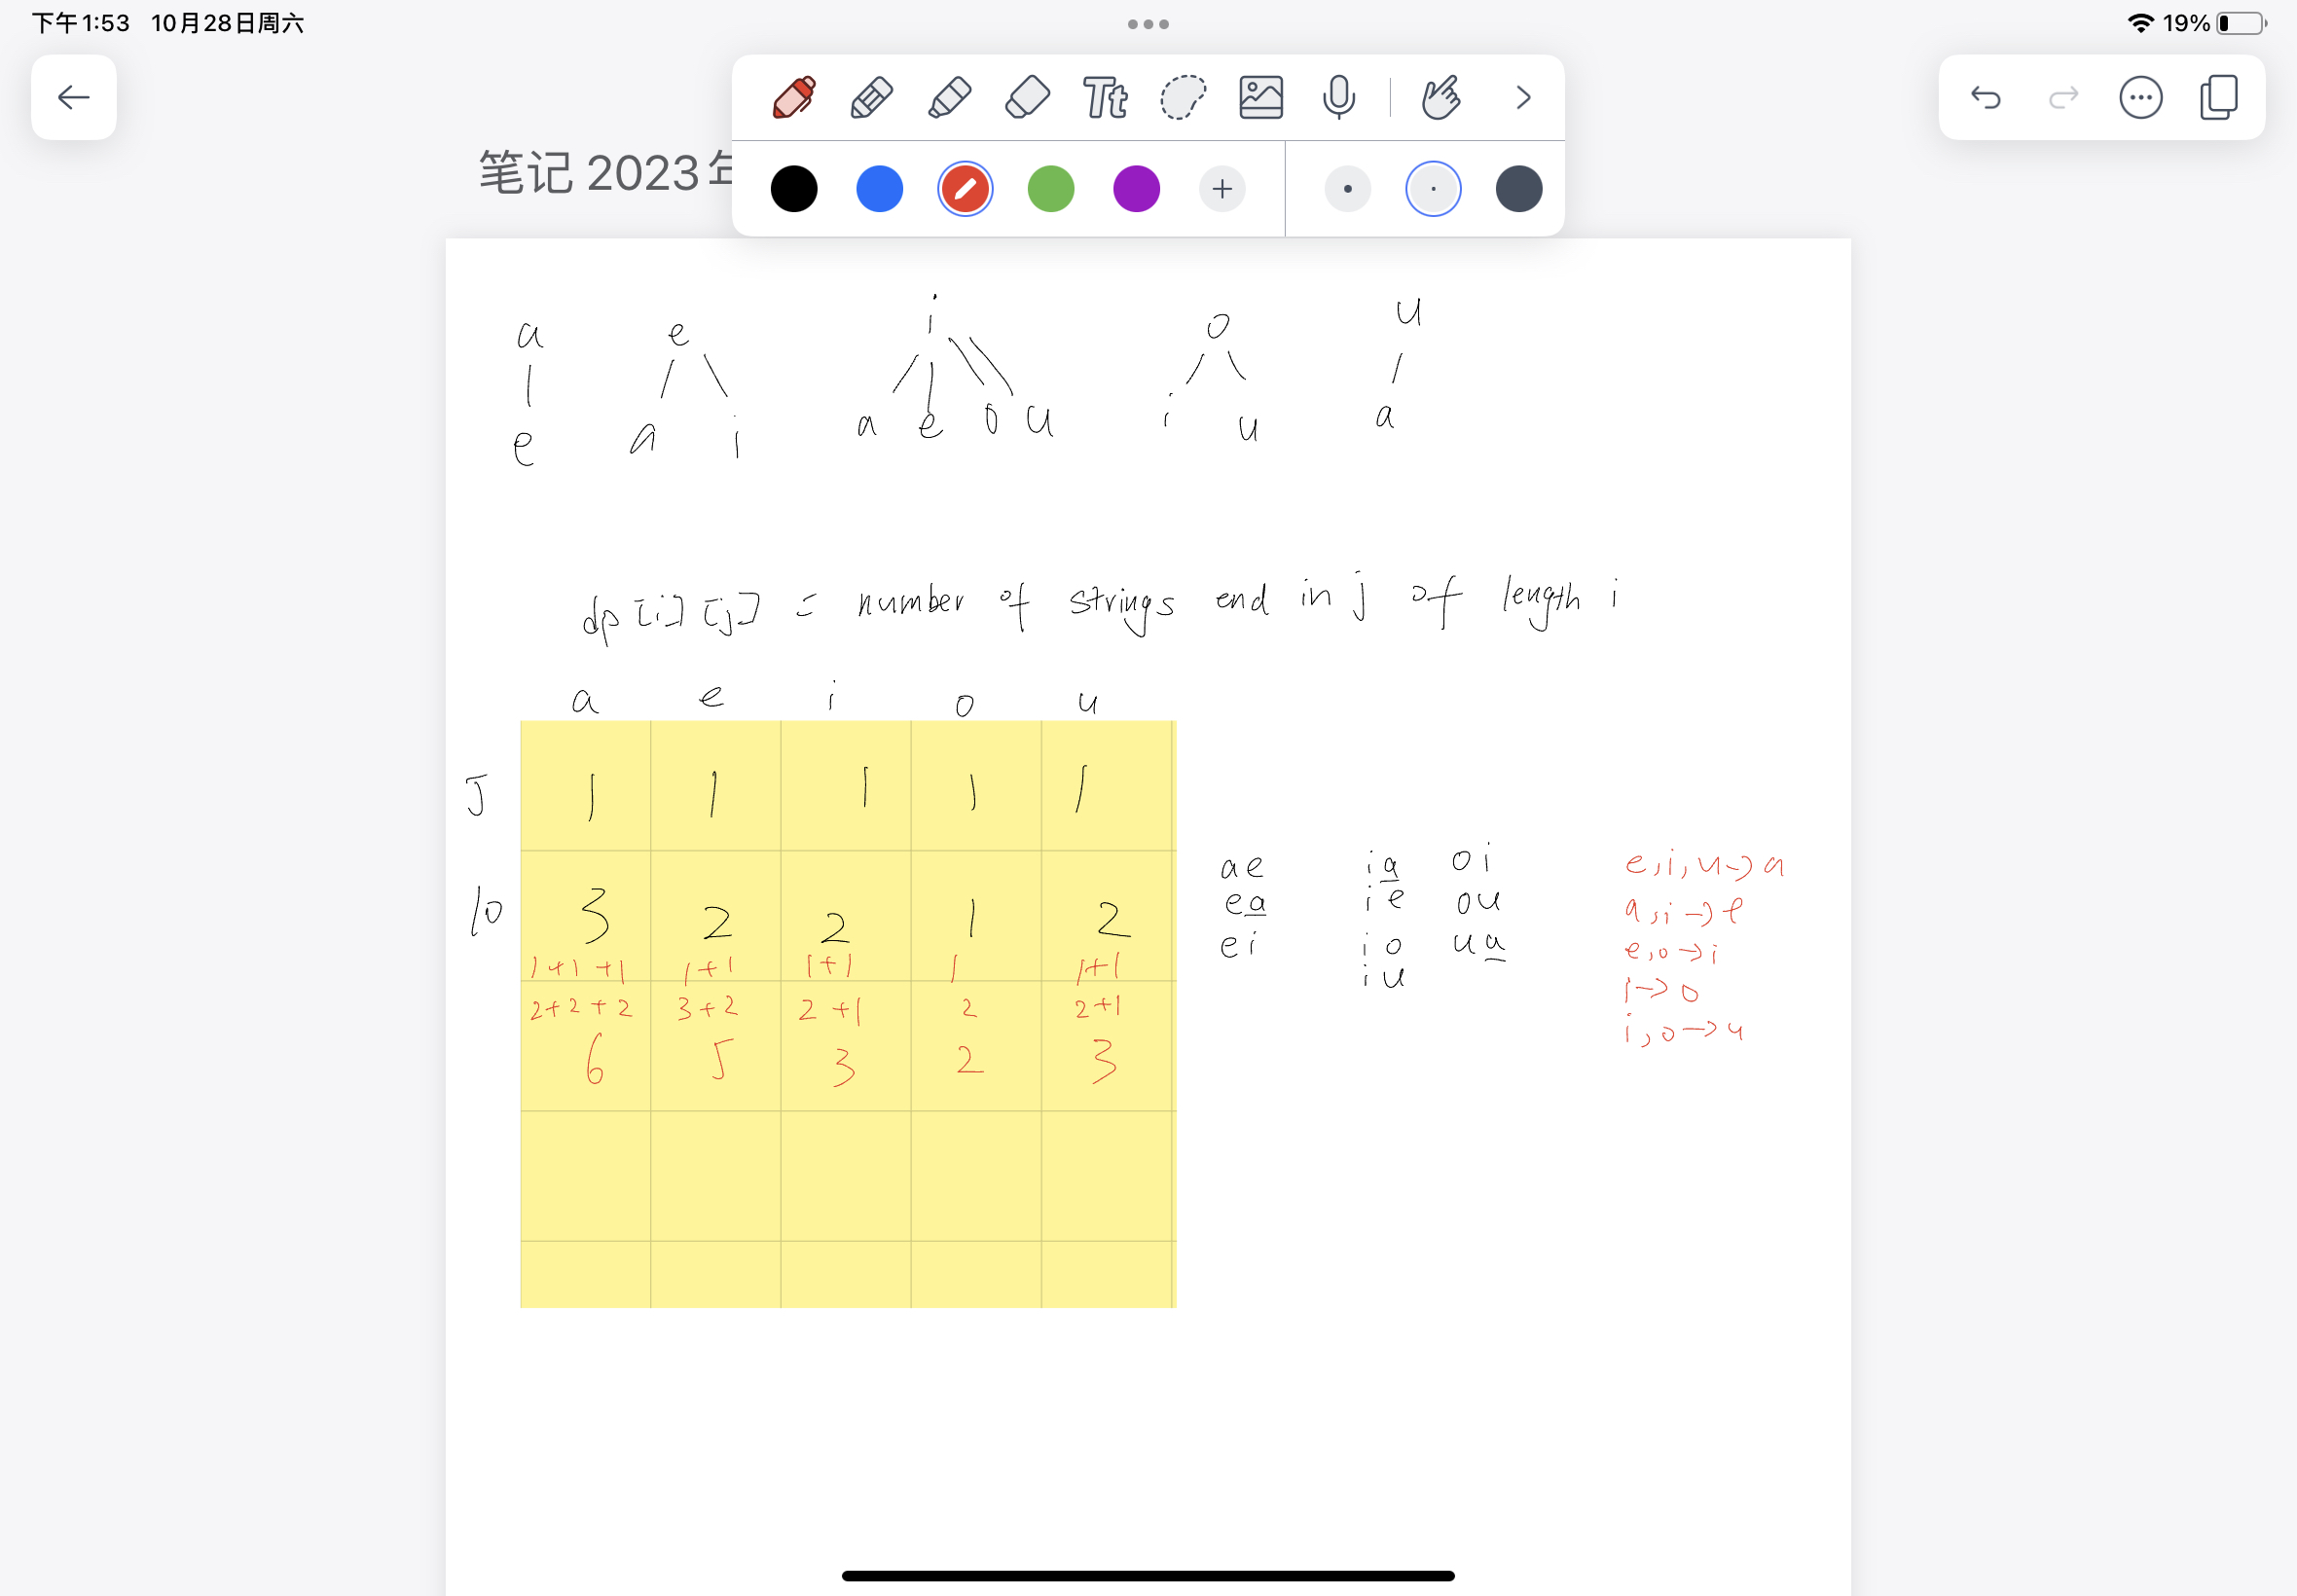 下午1:53 10月28日周六
19%
Tt
笔记 2023
a e i o u
e a i a e o u i u a
dp[i][j] = number of strings end in j of length i
a e i o u
5 1 1 1 1 1
10 3 2 2 1 2
1+1+1 1+1 1+1 1 1+1
2+2+2 3+2 2+1 2 2+1
6 5 3 2 3
ae ia oi
ea ie ou
ei io ua
iu
e,i,u->a
a,i->e
e,o->i
i->o
i,o->u